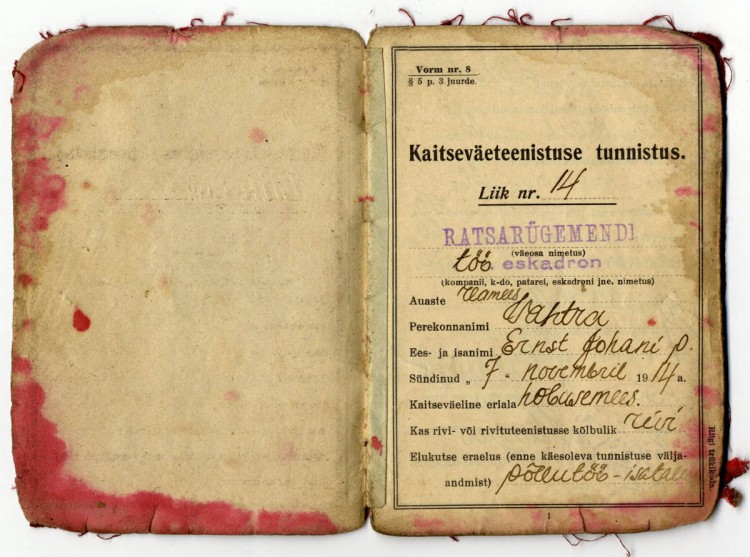 Vorm nr. 8
§ 5 p. 3 juurde.
Kaitseväeteenistuse tunnistus.
Liik nr. 14
RATSARÜGEMENDI
(väeosa nimetus)
töö eskadron
(kompanii, k-do, patarei, eskadroni jne. nimetus)
Auaste reamees
Perekonnanimi Vahtra
Ees- ja isanimi Ernst Johani p.
Sündinud „ 7 “ novembril 1914 a.
Kaitseväeline eriala hobusemees.
Kas rivi- või rivituteenistusse kõlbulik rivi
Elukutse eraelus (enne käesoleva tunnistuse välja-
andmist) põllutöö - isatalus
Riigi trükikoda.
1